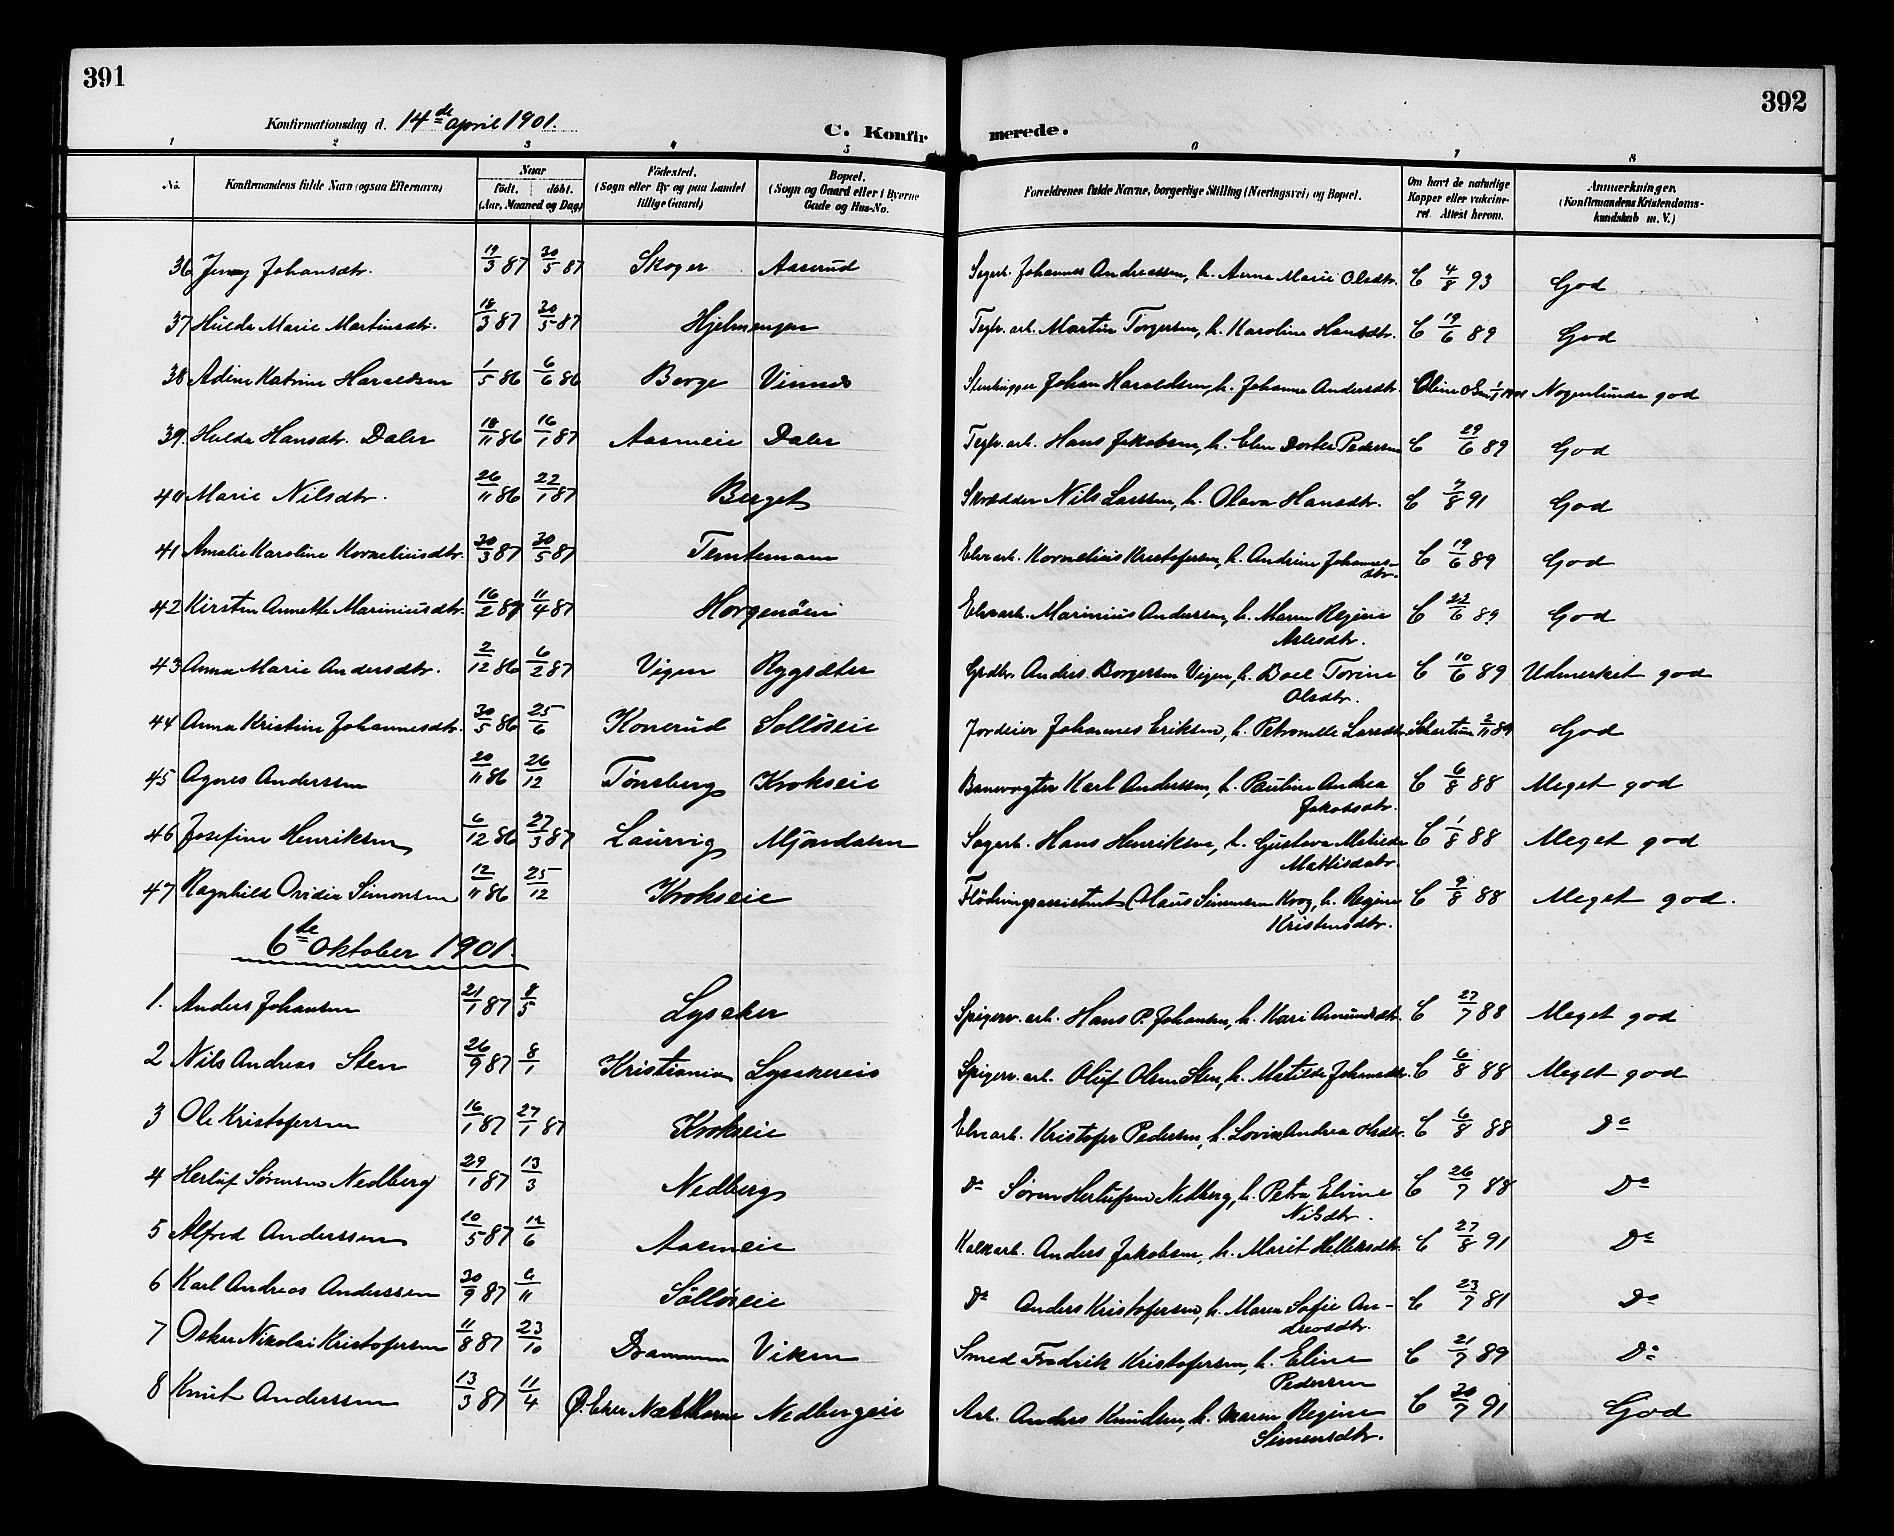 391
392
Konfirmationsdag d. 14de April 1901.
C. Konfir merede.
1 2 3 4 5 6 7 8
No. Konfirmandens fulde Navn (ogsaa Efternavn) Naar født. døbt. (Aar, Maaned og Dag) Fødested. (Sogn eller By og paa Landet tillige Gaard) Bopæl. (Sogn og Gaard eller i Byerne Gade og Hus-No. Forældrenes fulde Navne, borgerlige Stilling (Næringsvei) og Bopæl. Om havt de naturlige Kopper eller vaccineret Attest herom. Anmærkninger. (Konfirmandens Kristendomskundskab m. V.)
36 Jenny Johansdtr. 19/3 87 30/5 87 Skoger Aaserud Sagarb. Johannes Andreassen, h. Anna Marie Olsdtr. C 4/8 93 God
37 Hulda Marie Martinsdtr. 18/3 87 30/5 87 Hjelmengen Teglv. arb. Martin Torgersen, h. Karoline Hansdtr. C 19/6 89 God
38 Adine Katrine Haraldsen 1/5 86 6/6 86 Berge Vinnes Stenhugger Johan Haraldsen, h. Johanne Andersdtr. Nogenlunde god
39. Hulda Hansdtr. Daler 18/11 86 16/1 87 Aasmeie Daler Teglv. arb. Hans Jakobsen, h. Elen Dortea Pedersen C 29/6 89 God
40 Marie Nilsdtr. 26/11 86 22/1 87 Berget Skrædder Nils Larssen, h. Olava Hansdtr. C 7/8 91 God
41 Amalie Karoline Korneliusdtr. 30/3 87 30/5 87 Temtemoen Elvearb. Kornelius Kristofersen, h. Andrine Johannesdtr. C 19/6 89 God
42 Kirsten Annette Mariniusdtr. 16/2 87 11/4 87 Horgenöen Elvearb. Marinius Andersen, h. Maren Regine Arlesdtr. C 22/6 89 God
43 Anna Marie Andersdtr. 2/12 86 6/2 87 Vigen Rygsæter Grdbr. Anders Borgersen Vigen, h. Boel Torine Olsdtr. C 10/6 89 Udmerket god
44 Anna Kristine Johannesdtr. 30/5 86 25/6 Konerud Solløseie Jordeier Johannes Eriksen, h. Petronelle Larsdtr. God
45 Agnes Anderssen 20/11 86 26/12 Tønsberg Krokseie Banevogter Karl Anderssen, h. Pauline Andrea Jakobsdtr. C 6/8 88 Meget god
46 Josefine Henriksen 6/12 86 27/3 87 Laurvig Mjøndalen Sagarb. Hans Henriksen, h. Gustava Matilde Mattisdatr. C 1/8 88 Meget god
47 Ragnhild Ovidia Simonsen 12/11 86 25/12 Krokseie Flødningsassistent Olaus Simonsen Krog, h. Regine Kristensdtr. C 9/8 88 Meget god.
6te Oktober 1901.
1. Anders Johansen 21/1 87 8/5 Lysaker Spigerv. arb. Hans P. Johansen, h. Kari Amundsdtr. C 27/7 88 Meget god
2 Nils Andreas Sten 26/9 87 8/1 Kristiania Lysakereie Spigerv. arb. Oluf Olsen Sten, h. Matilde Johansdtr. C 6/8 88 Meget god
3 Ole Kristofersen 16/1 87 27/1 87 Krokseie Elvearb. Kristofer Pedersen, h. Lovise Andrea Olsdtr. C 6/8 88 Do
4 Herluf Sørensen Nedberg 29/1 87 13/3 Nedberg Do Søren Herlufsen Nedberg, h. Petra Elvine Nilsdtr. C 26/7 88 Do
5 Alfred Anderssen 10/5 87 12/6 Aasmeie Kalkarb. Anders Jakobsen, h. Marit Helliksdtr. C 27/8 91 Do
6 Karl Andreas Anderssen 30/9 87 6/11 Solløseie Do Anders Kristofersen, h. Maren Sofie Andreasdtr. C 23/7 81 Do
7 Oskar Nikolai Kristofersen 11/8 87 23/10 Drammen Viken Smed Fredrik Kristofersen, h. Eline Pedersen C 21/7 89 Do
8 Knut Anderssen 13/3 87 11/4 Ø. Eker Nedbergeie Arb. Anders Knudsen, h. Maren Regine Simensdtr. C 20/7 91 God